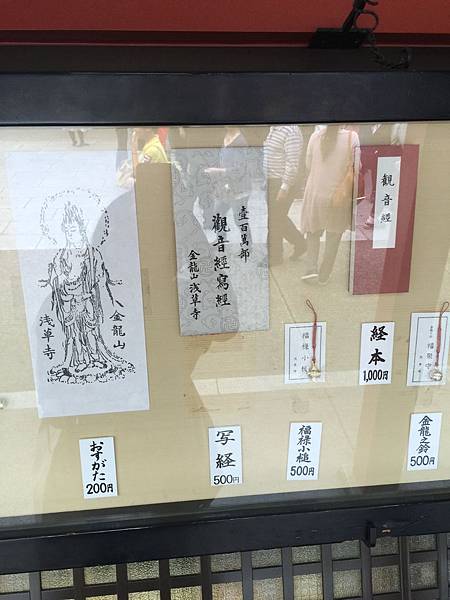 金龍山
浅草寺
おすがた
200円
壹百萬部
觀音經寫經
金龍山浅草寺
写経
500円
福祿小槌
福禄小槌
500円
觀音經
経本
1,000円
金龍之鈴
500円